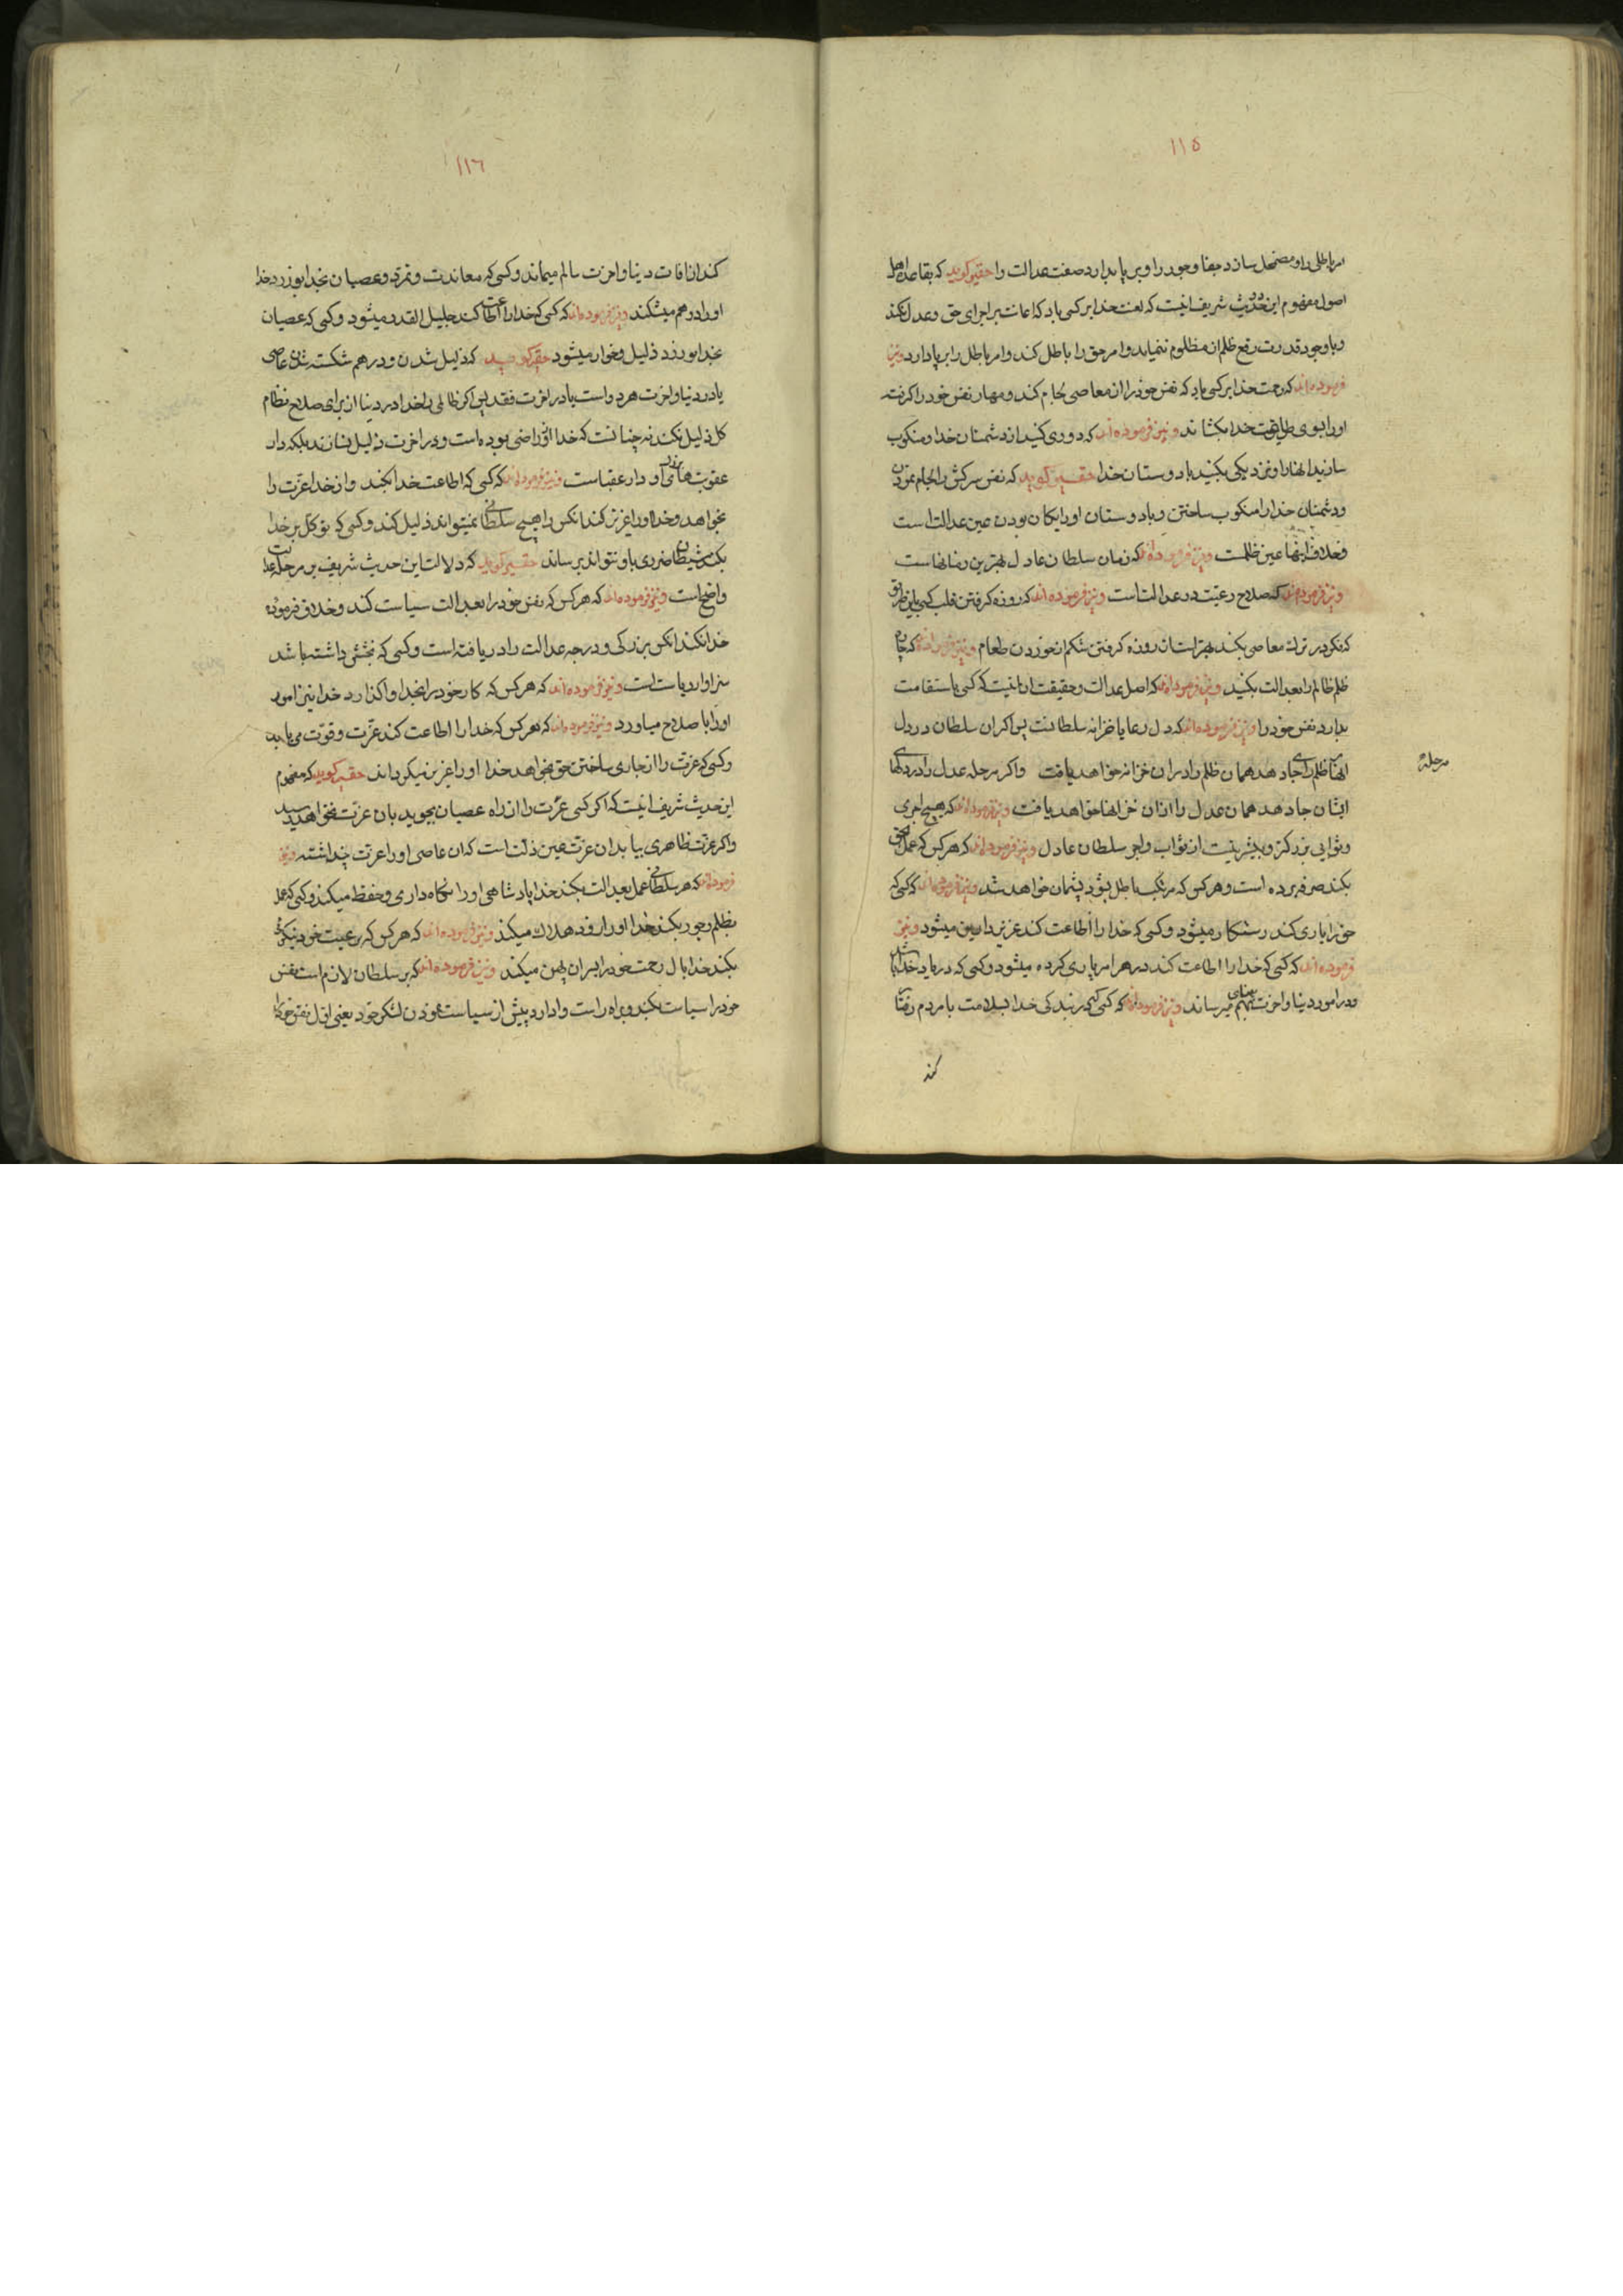 ۱۱۵
امر باطلی را و مضمحل سازد جفا و جور را و بر پا بدارد صفت عدالت را حقیر کوید که بقاعده اهل
اصول مفهوم این حدیث شریف اینست که لعنت خدا بر کسی باد که اعانت بر اجرای حق و عدل نکند
و با وجود قدرت رفع ظلم از مظلوم ننماید و امر حق را باطل کند و امر باطل را بر پا دارد و نیز
فرموده اند که رحمت خدا بر کسی باد که نفس خود را از معاصی لجام کند و مهار نفس خود را کرفته
او را بسوی طاعت خدا بکشاند و نیز فرموده اند که دوری کنید از دشمنان خدا و منکوب
سازید انها را و نزدیکی بکنید با دوستان خدا حقیر کوید که نفس سرکش را لجام نمودن
و دشمنان خدا را منکوب ساختن و با دوستان او رایکان بودن عین عدالت است
و خلاف اینها عین ظلمست و نیز فرموده اند که زمان سلطان عادل بهترین زمانهاست
و نیز فرموده اند که صلاح رعیت در عدالت است و نیز فرموده اند که روزه کرفتن قلب کسی باین طریق
که فکر در ترک معاصی بکند بهتر است از روزه کرفتن شکم از خوردن طعام و نیز فرموده اند که چاره
ظلم ظالم را بعدالت بکنید و نیز فرموده اند که اصل عدالت و حقیقت ان اینست که کسی با ستقامت
بدارد نفس خود را و نیز فرموده اند که دل رعایا خزانه سلطانست پس اکر ان سلطان در دل
انها ظلم را جای دهد همان ظلم را در ان خزانه خواهد یافت و اکر مرحله عدل را در دلهای
مرحله
ایشان جا دهد همان عدل را از ان خزانها خواهد یافت و نیز فرموده اند که هیچ اجری
و ثوابی بزرکتر و بیشتر نیست از ثواب و اجر سلطان عادل و نیز فرموده اند که هر کس که عمل بحق
بکند صرفه برده است و هر کس که مرتکب باطل شود پشیمان خواهد شد و نیز فرموده اند که کسی که
حق را یاری کند رستکار میشود و کسی که خدا را اطاعت کند عزیز دارین میشود و نیز
فرموده اند که کسی که خدا را اطاعت کند در هر امر یاری کرده میشود و کسی که در یاد خدا باشد
و در امور دنیا و اخرت بهم میرساند و نیز فرموده اند که کسی که در بندکی خدا بسلامت با مردم رفتار
کند
۱۱۶
کند از افات دنیا و اخرت سالم میماند و کسی که معاندت و تمرد و عصیان بخدا بورزد خدا
او را در هم میشکند و نیز فرموده اند که کسی که خدا را اطاعت کند جلیل القدر میشود و کسی که عصیان
بخدا بورزد ذلیل و خوار میشود حقیر کوید که ذلیل شدن و در هم شکسته شدن عاصی
یا در دنیا و اخرت هر دو است یا در اخرت فقد پس اکر ظالمی را خدا در دنیا از برای صلاح نظام
کل ذلیل نکند نه چنانست که خدا از او راضی بوده است و در اخرت ذلیل نسازند بلکه دار
عقوبت او دار عقباست و نیز فرموده اند که کسی که اطاعت خدا بکند و از خدا عزت را
بخواهد و خدا او را عزیز کند انکس را هیچ سلطانی نمیتواند ذلیل کند و کسی که توکل بر خدا
بکند شیطان ضرری باو نتواند برساند حقیر کوید که دلالت این حدیث شریف بر مرحله عدالت
واضح است و نیز فرموده اند که هر کس که نفس خود را بعدالت سیاست کند و خلاف فرموده
خدا نکند انکس بزرکی و درجه عدالت را دریافته است و کسی که بخشش داشته باشد
سزاوار ریاست است و نیز فرموده اند که هر کس که کار خود را بخدا واکذارد خدا نیز امور
او را با صلاح میاورد و نیز فرموده اند که هر کس که خدا را اطاعت کند عزت و قوت می یابد
و کسی که عزت را از جاری ساختن حق بخواهد خدا او را عزیز میکرداند حقیر کوید که مفهوم
این حدیث شریف اینست که اکر کسی عزت را از راه عصیان بجوید بان عزت نخواهد رسید
و اکر عزت ظاهری بیابد ان عزت عین ذلت است که ان عاصی او را عزت پنداشته و نیز
فرموده اند که هر سلطانی عمل بعدالت بکند خدا پادشاهی او را نکاه داری و حفظ میکند و کسی که عمل
بظلم و جور بکند خدا او را زود هلاک میکند و نیز فرموده اند که هر کس که برعیت خود نیکوئی
بکند خدا بال رحمت خود را بر ان پهن میکند و نیز فرموده اند که بر سلطان لازم است نفس
خود را سیاست بکند و براه راست وادارد پیش از سیاست نمودن لشکر خود یعنی اول نفس خود را